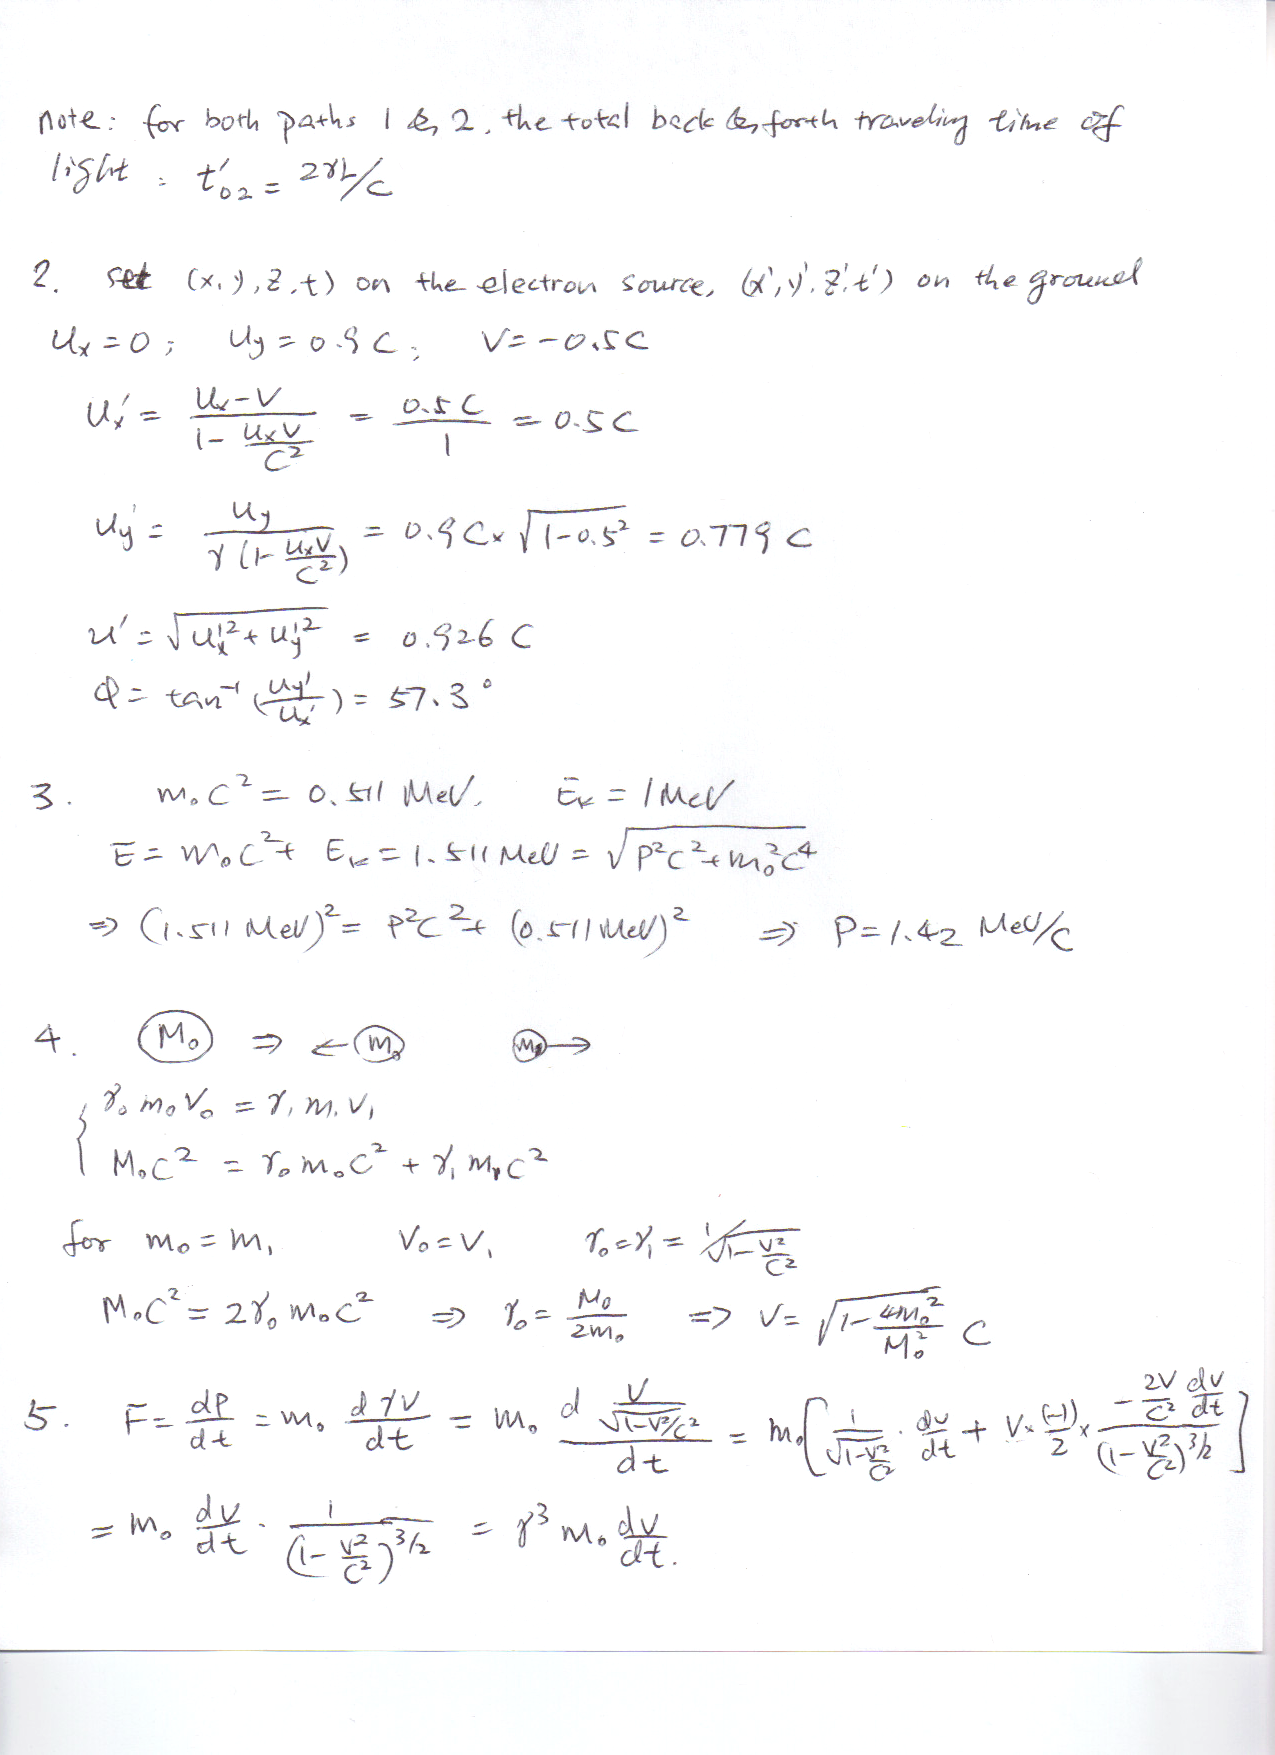 note: for both paths 1 & 2, the total back & forth traveling time of
light : t'₀₂ = 2γL/c
2. set (x, y, z, t) on the electron source, (x', y', z', t') on the ground
Uₓ = 0 ; U_y = 0.9 C ; V = -0.5C
Uₓ' = (Uₓ - V)/(1 - UₓV/C²) = 0.5C/1 = 0.5C
U_y' = U_y/(γ(1 - UₓV/C²)) = 0.9C × √(1-0.5²) = 0.779 C
u' = √(Uₓ'² + U_y'²) = 0.926 C
φ = tan⁻¹(U_y'/Uₓ') = 57.3°
3. m₀C² = 0.511 MeV, E_k = 1 MeV
E = m₀C² + E_k = 1.511 MeV = √(P²C² + m₀²C⁴)
⇒ (1.511 MeV)² = P²C² + (0.511 MeV)² ⇒ P = 1.42 MeV/c
4. M₀ ⇒ ← m₀ m₁ →
{ γ₀ m₀ V₀ = γ₁ m₁ V₁
M₀C² = γ₀ m₀ C² + γ₁ m₁ C²
for m₀ = m₁ V₀ = V₁ γ₀ = γ₁ = 1/√(1 - V²/C²)
M₀C² = 2γ₀ m₀C² ⇒ γ₀ = M₀/2m₀ ⇒ V = √(1 - 4m₀²/M₀²) C
5. F = dP/dt = m₀ dγV/dt = m₀ d(V/√(1-V²/C²))/dt = m₀[1/√(1-V²/C²) · dv/dt + V × (-1)/2 × (-2V/C² dv/dt)/(1-V²/C²)^(3/2)]
= m₀ dv/dt · 1/(1 - V²/C²)^(3/2) = γ³ m₀ dv/dt.